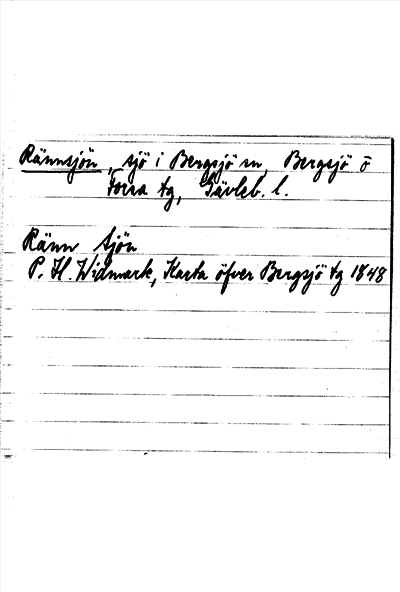 Rännsjön, sjö i Bergsjö sn, Bergsjö o
Forsa tg, Gävleb. l.
Ränn Sjön
P. H. Widmark, Karta öfver Bergsjö tg 1848